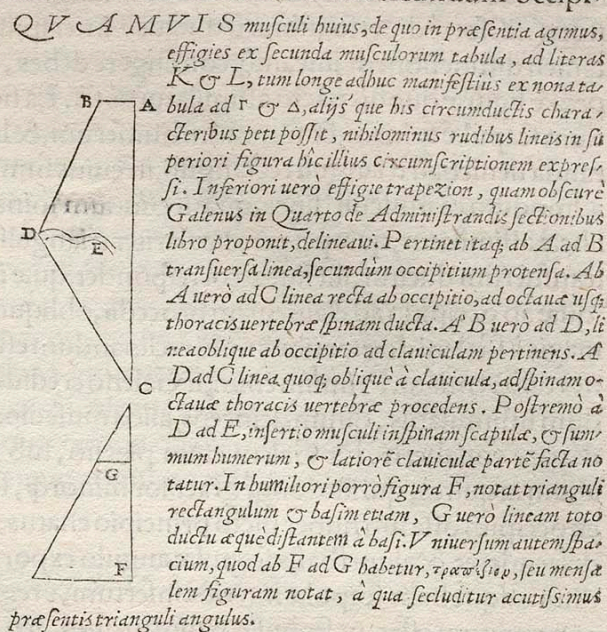 QVAMVIS musculi huius, de quo in præsentia agimus,
effigies ex secunda musculorum tabula, ad literas
K & L, tum longe adhuc manifestiùs ex nona ta-
bula ad Γ & Δ, alijs'que his circumductis chara-
cteribus peti possit, nihilominus rudibus lineis in su
periori figura hîc illius circumscriptionem expres-
si. Inferiori uerò effigie trapezion, quam obscurè
Galenus in Quarto de Administrandis sectionibus
libro proponit, delineaui. Pertinet itaq; ab A ad B
transuersa linea, secundùm occipitium protensa. Ab
A uerò ad C linea recta ab occipitio, ad octauæ usq;
thoracis uertebræ spinam ducta. A' B uerò ad D, li
nea oblique ab occipitio ad clauiculam pertinens. A'
D ad C linea quoq; obliquè à clauicula, ad spinam o-
ctauæ thoracis uertebræ procedens. Postremò à
D ad E, insertio musculi in spinam scapulæ, & sum-
mum humerum, & latiorẽ clauiculæ partẽ facta no
tatur. In humiliori porrò figura F, notat trianguli
rectangulum & basim etiam, G uerò lineam toto
ductu æquè distantem à basi. Vniuersum autem spa-
cium, quod ab F ad G habetur, τραπέζιον, seu mensæ
lem figuram notat, à qua secluditur acutissimus
præsentis trianguli angulus.
B
A
D
E
C
G
F